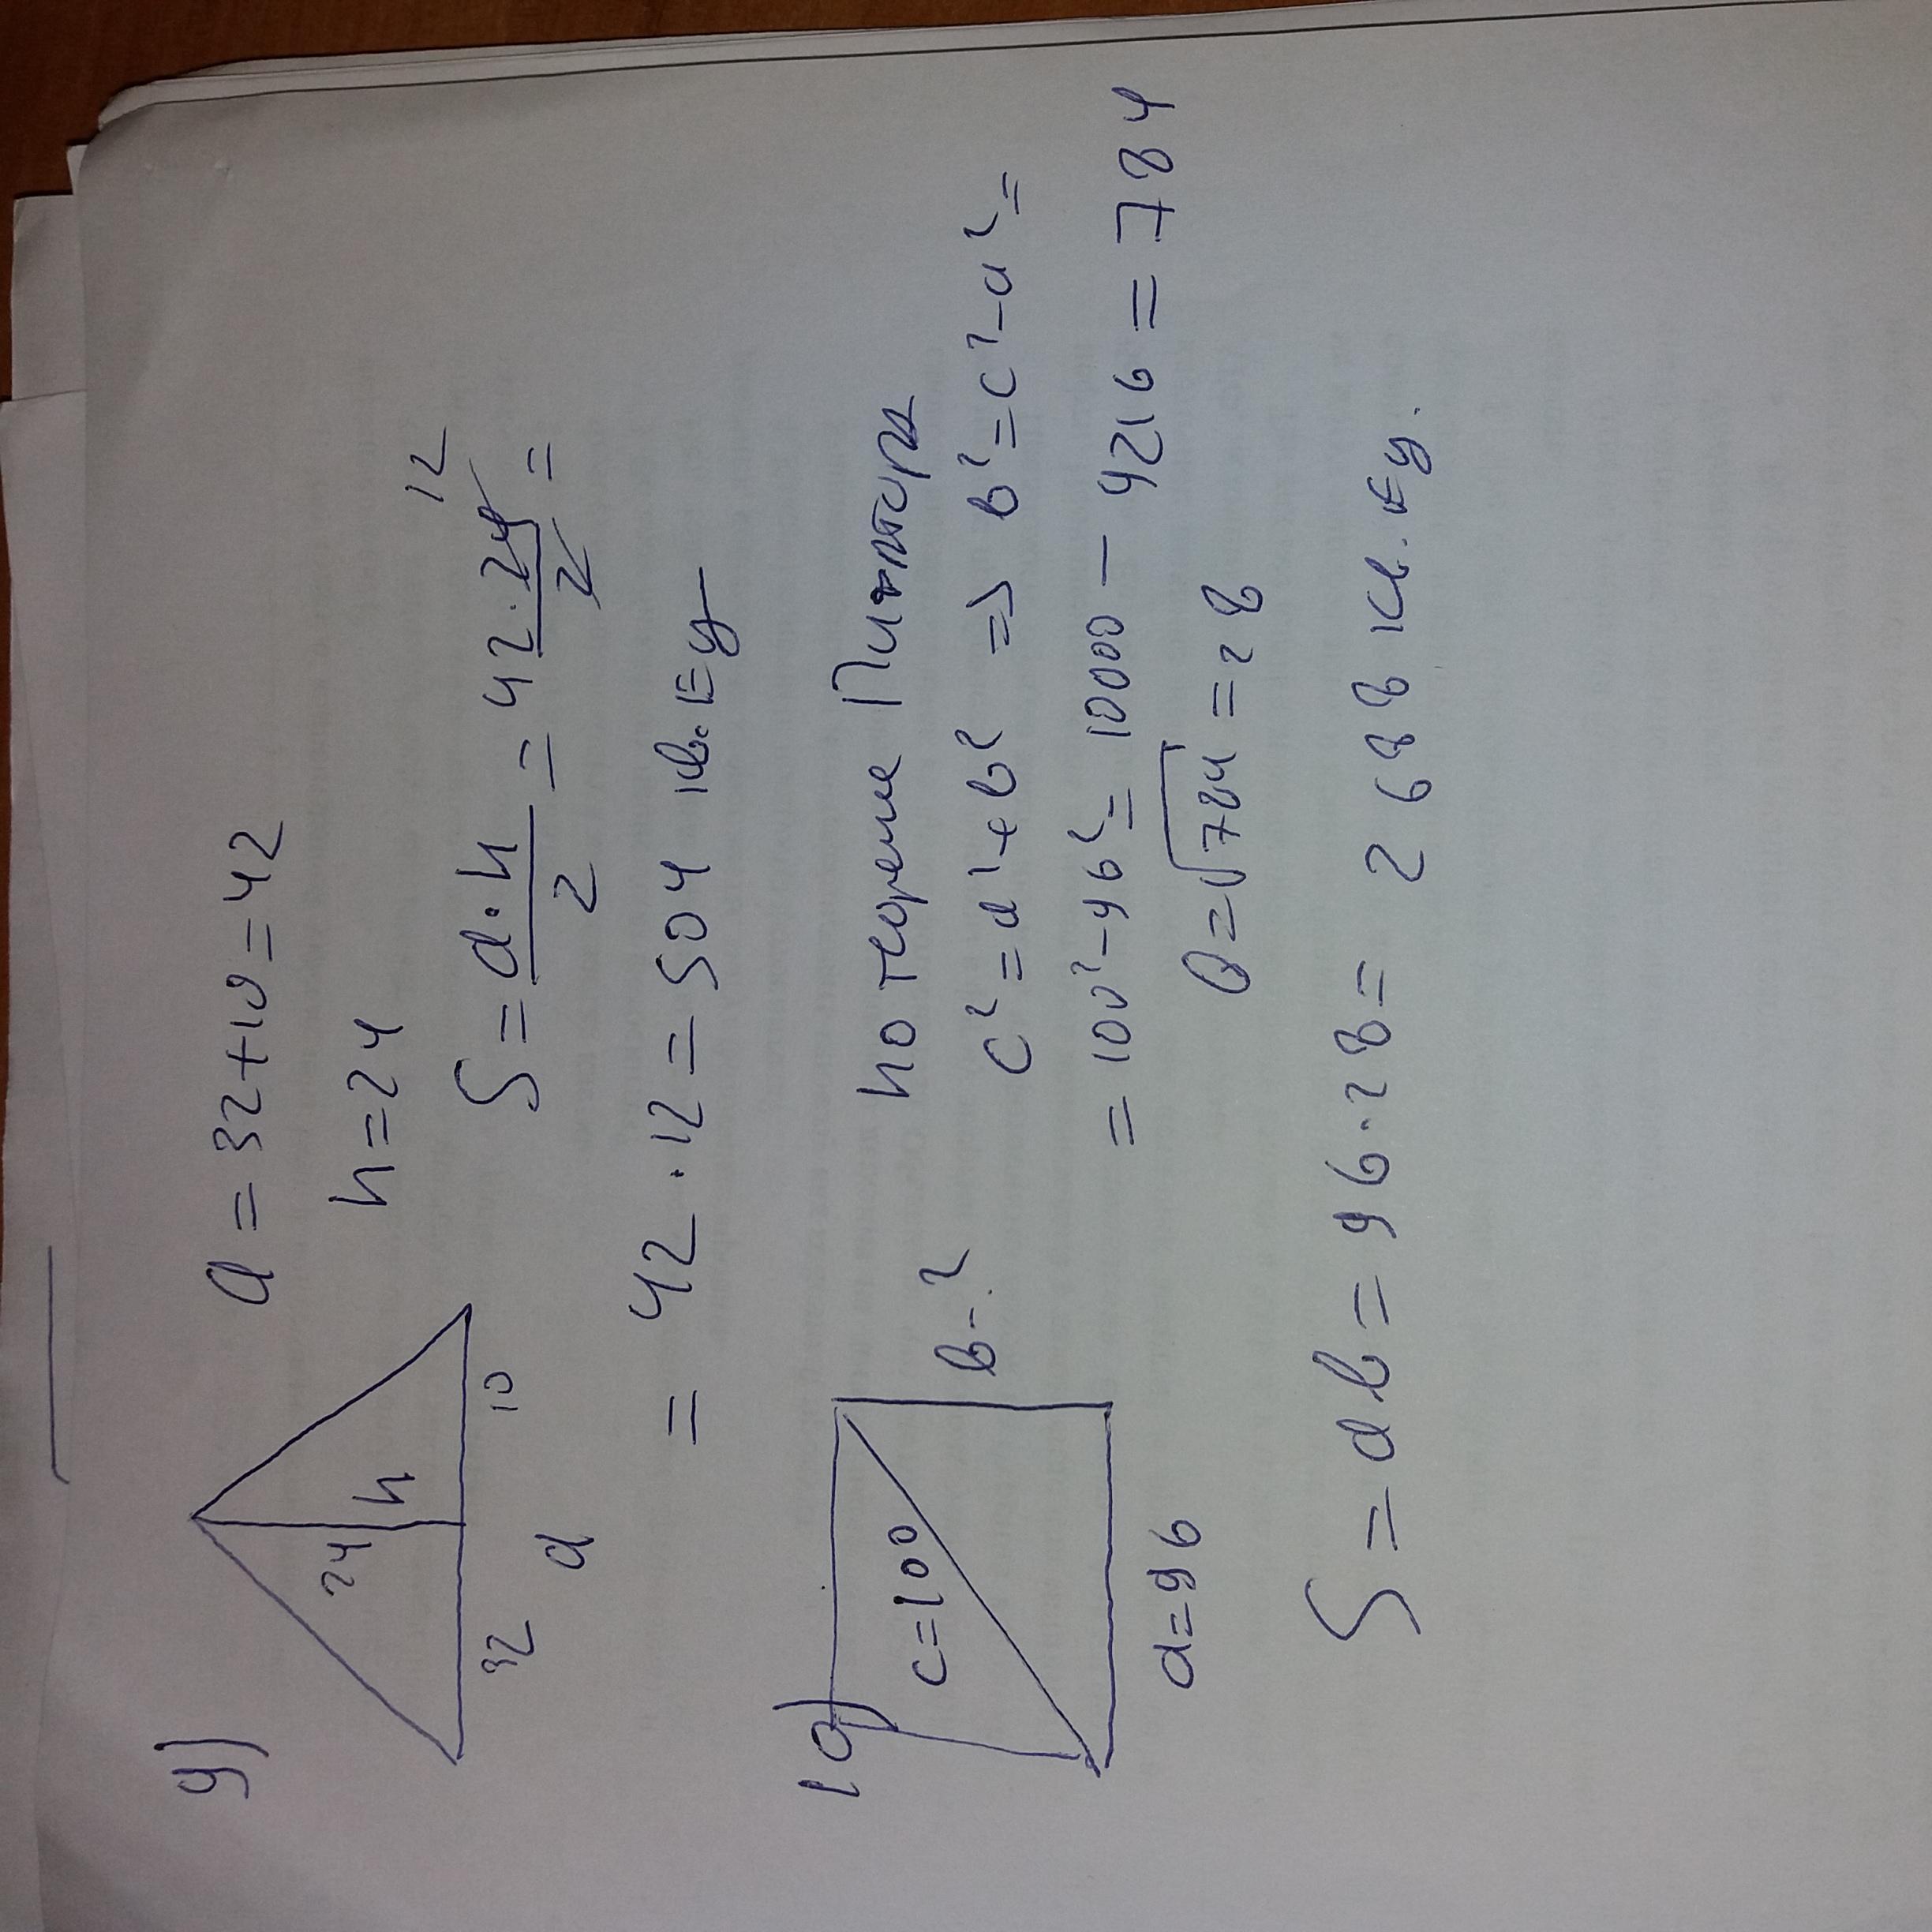 9)
a = 32 + 10 = 42
24
h
32
10
a
h = 24
S = a·h/2 = 42·24/2 =
12
= 42 · 12 = 504 кв. Еу
10)
c = 100
b - ?
a = 96
по теореме Пифагора
c² = a² + b² => b² = c² - a² =
= 100² - 96² = 10000 - 9216 = 784
b = √784 = 28
S = ab = 96 · 28 = 2688 кв. Еу.